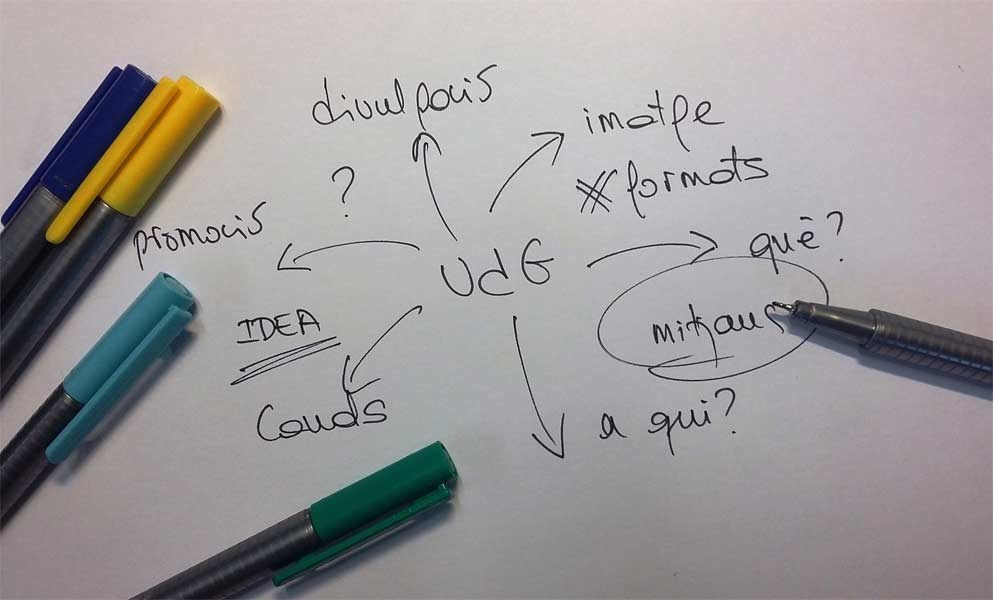 divulgació
imatge
# formats
?
promoció
què?
UdG
IDEA
mitjans
Canals
a qui?